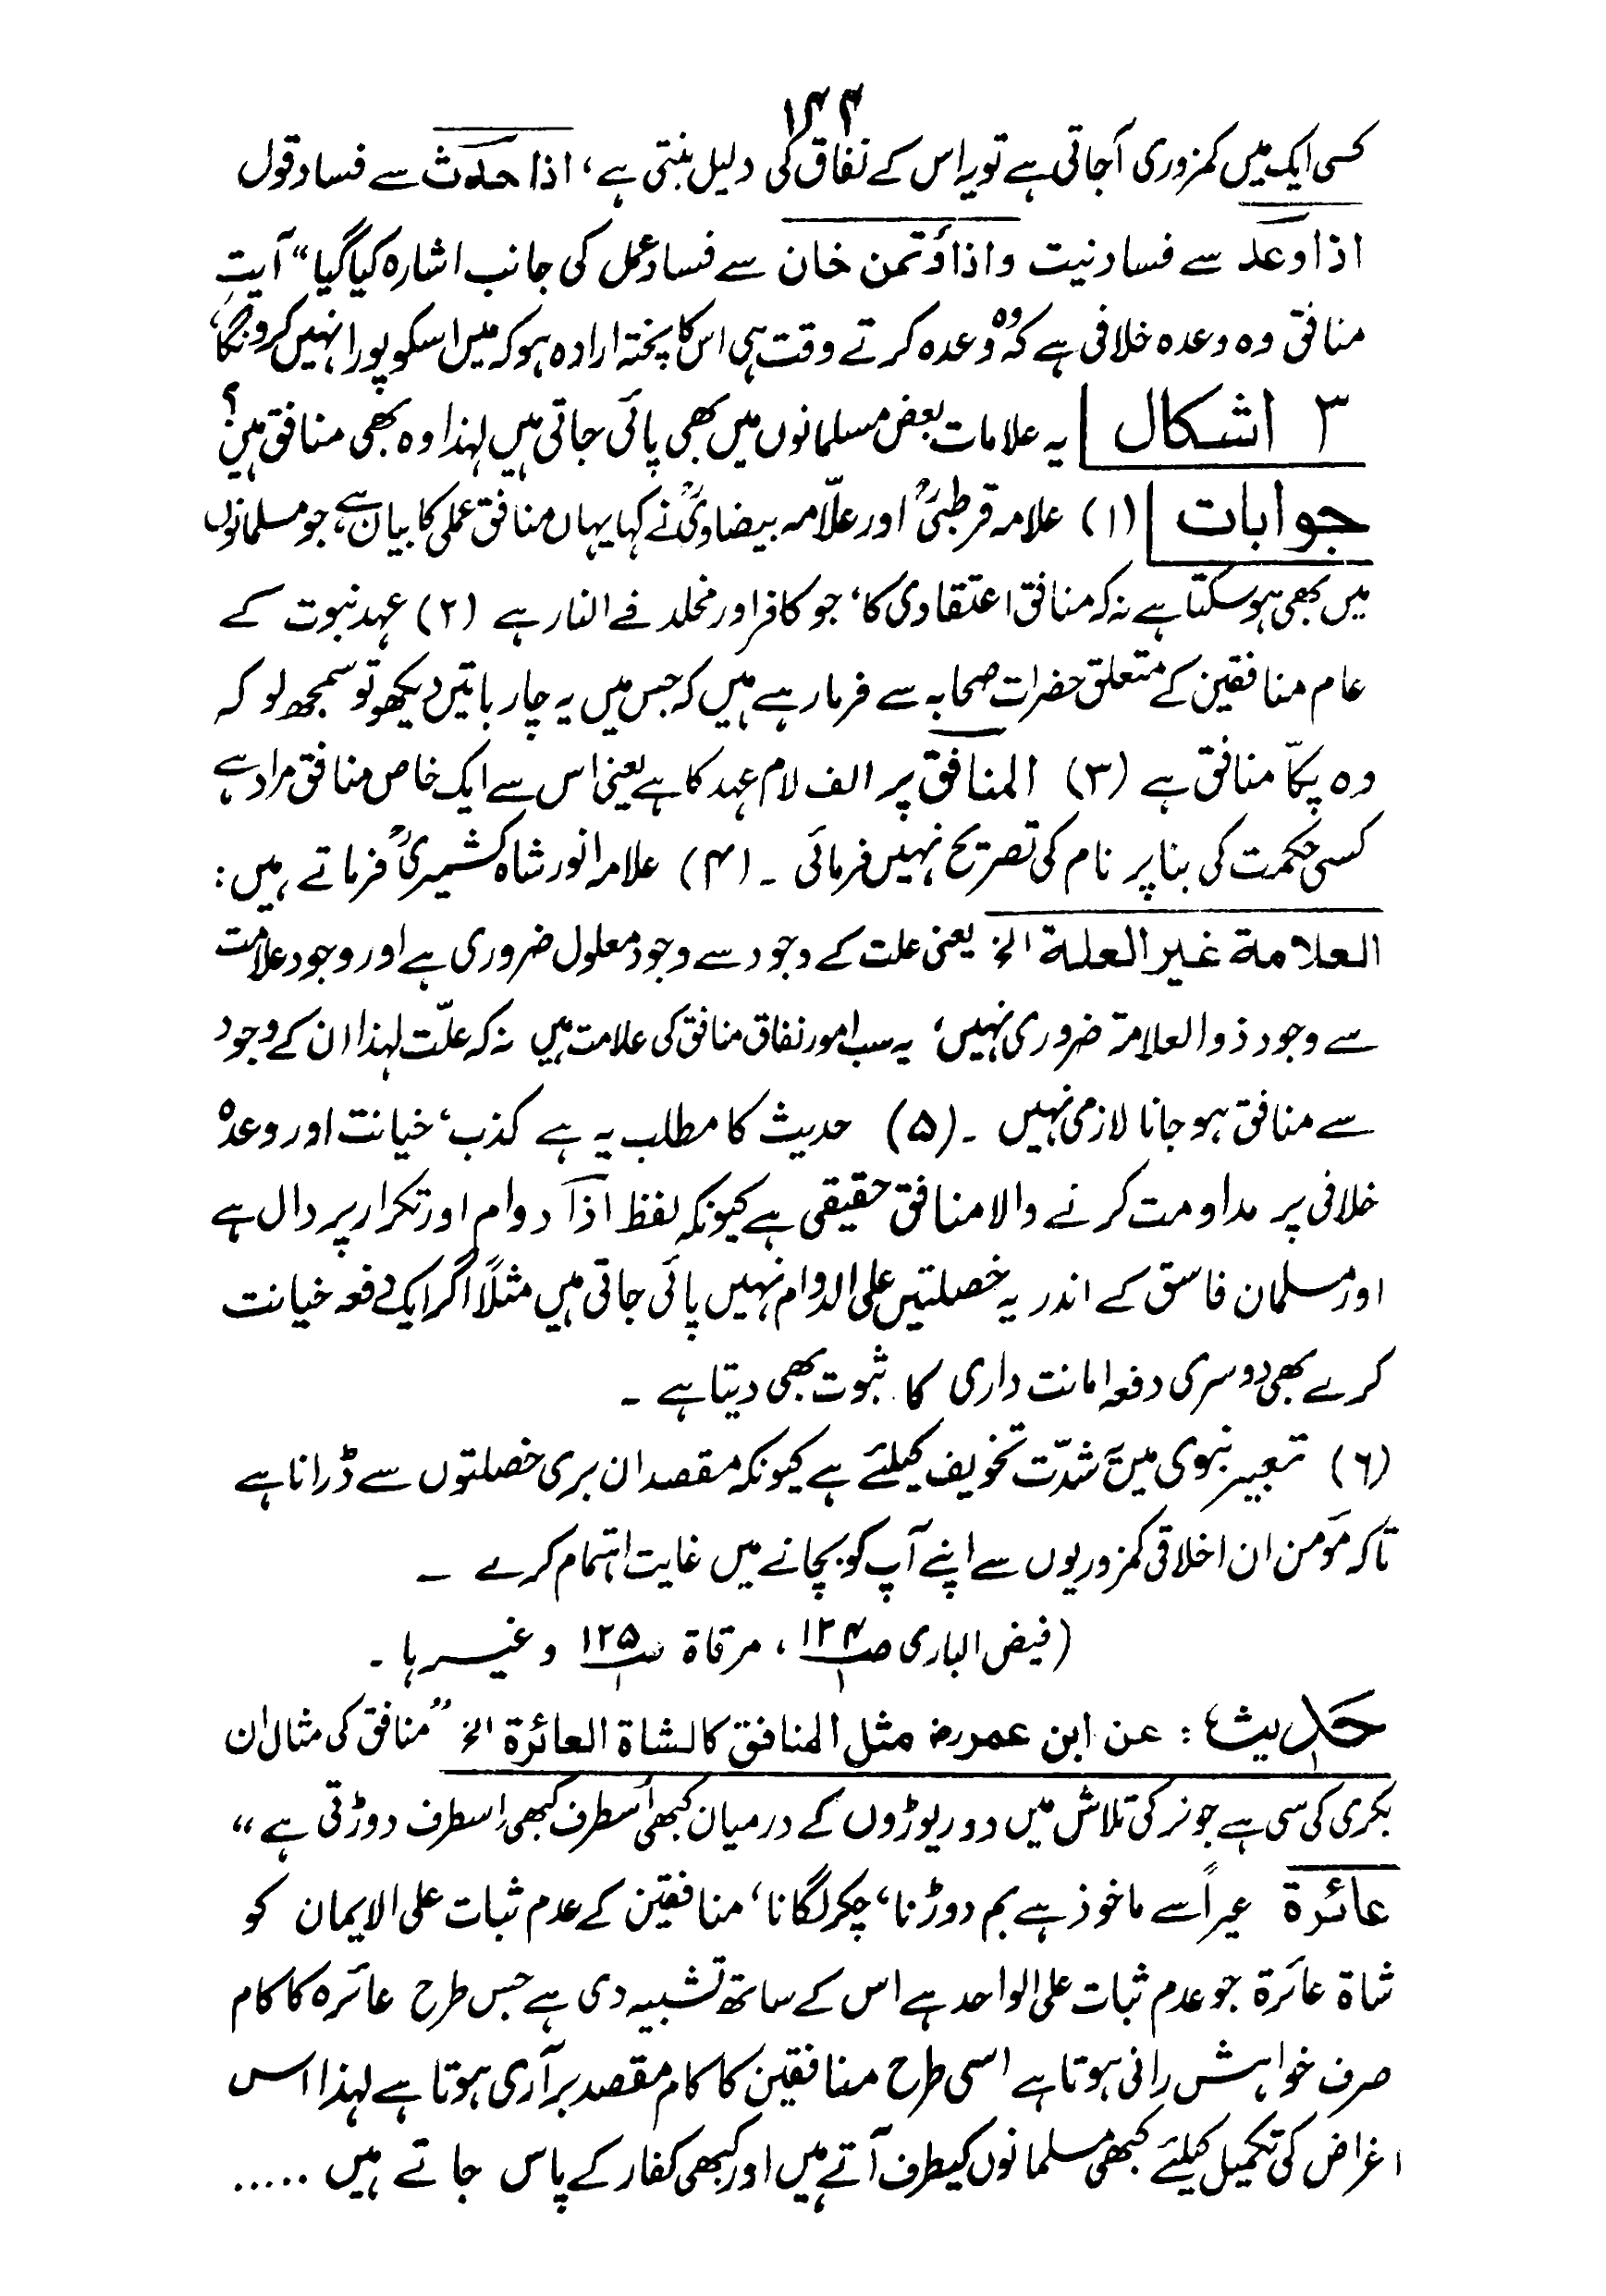 ۱۴۴
کسی ایک میں کمزوری آجاتی ہے تو یہ اس کے نفاق کی دلیل بنتی ہے، اذا حدث سے فساد قول
اذا وعد سے فساد نیت واذا اؤتمن خان سے فساد عمل کی جانب اشارہ کیا گیا“ آیتِ
منافق وہ وعدہ خلافی ہے کہ وہ وعدہ کرتے وقت ہی اس کا پختہ ارادہ ہو کہ میں اسکو پورا نہیں کرونگا،
۳ اشکال یہ علامات بعض مسلمانوں میں بھی پائی جاتی ہیں لہذا وہ بھی منافق ہیں؟
جوابات (۱) علامہ قرطبیؒ اور علّامہ بیضاویؒ نے کہا یہاں منافق عملی کا بیان ہے، جو مسلمانوں
میں بھی ہو سکتا ہے نہ کہ منافق اعتقادی کا، جو کافر اور مخلد فے النار ہے (۲) عہد نبوت کے
عام منافقین کے متعلق حضرات صحابہ سے فرما رہے ہیں کہ جس میں یہ چار باتیں دیکھو تو سمجھ لو کہ
وہ پکّا منافق ہے (۳) المنافق پر الف لام عہد کا ہے یعنی اس سے ایک خاص منافق مراد ہے
کسی حکمت کی بنا پر نام کی تصریح نہیں فرمائی ۔ (۴) علامہ انور شاہ کشمیریؒ فرماتے ہیں:
العلامة غیر العلة الخ یعنی علت کے وجود سے وجود معلول ضروری ہے اور وجود علامت
سے وجود ذوالعلامۃ ضروری نہیں، یہ سب امور نفاق منافق کی علامت ہیں نہ کہ علّت لہذا ان کے وجود
سے منافق ہو جانا لازمی نہیں ۔ (۵) حدیث کا مطلب یہ ہے کذب، خیانت اور وعدہ
خلافی پر مداومت کرنے والا منافق حقیقی ہے کیونکہ لفظ اذا دوام اور تکرار پر دال ہے
اور مسلمان فاسق کے اندر یہ خصلتیں علی الدوام نہیں پائی جاتی ہیں مثلاً اگر ایک دفعہ خیانت
کرے بھی دوسری دفعہ امانت داری کا ثبوت بھی دیتا ہے ۔
(۶) تعبیر نبوی میں شدّت تخویف کیلئے ہے کیونکہ مقصد ان بری خصلتوں سے ڈرانا ہے
تاکہ مؤمن ان اخلاقی کمزوریوں سے اپنے آپ کو بچانے میں غایت اہتمام کرے ۔
(فیض الباری ص ۱۲۴/۱، مرقاۃ ص ۱۲۵/۱ وغیرہا ۔
حدیث : عن ابن عمر رض مثل المنافق کالشاة العائرة الخ ”منافق کی مثال ان
بکری کی سی ہے جو نر کی تلاش میں دو ریوڑوں کے درمیان کبھی اُسطرف کبھی اِسطرف دوڑتی ہے“
عائرة عیراً سے ماخوذ ہے بم دوڑنا، چکر لگانا، منافقین کے عدم ثبات علی الایمان کو
شاة عائرة جو عدم ثبات علی الواحد ہے اس کے ساتھ تشبیہ دی ہے جس طرح عائرہ کا کام
صرف خواہش رانی ہوتا ہے اسی طرح منافقین کا کام مقصد برآری ہوتا ہے لہذا اس
اغراض کی تکمیل کیلئے کبھی مسلمانوں کیطرف آتے ہیں اور کبھی کفار کے پاس جاتے ہیں .....